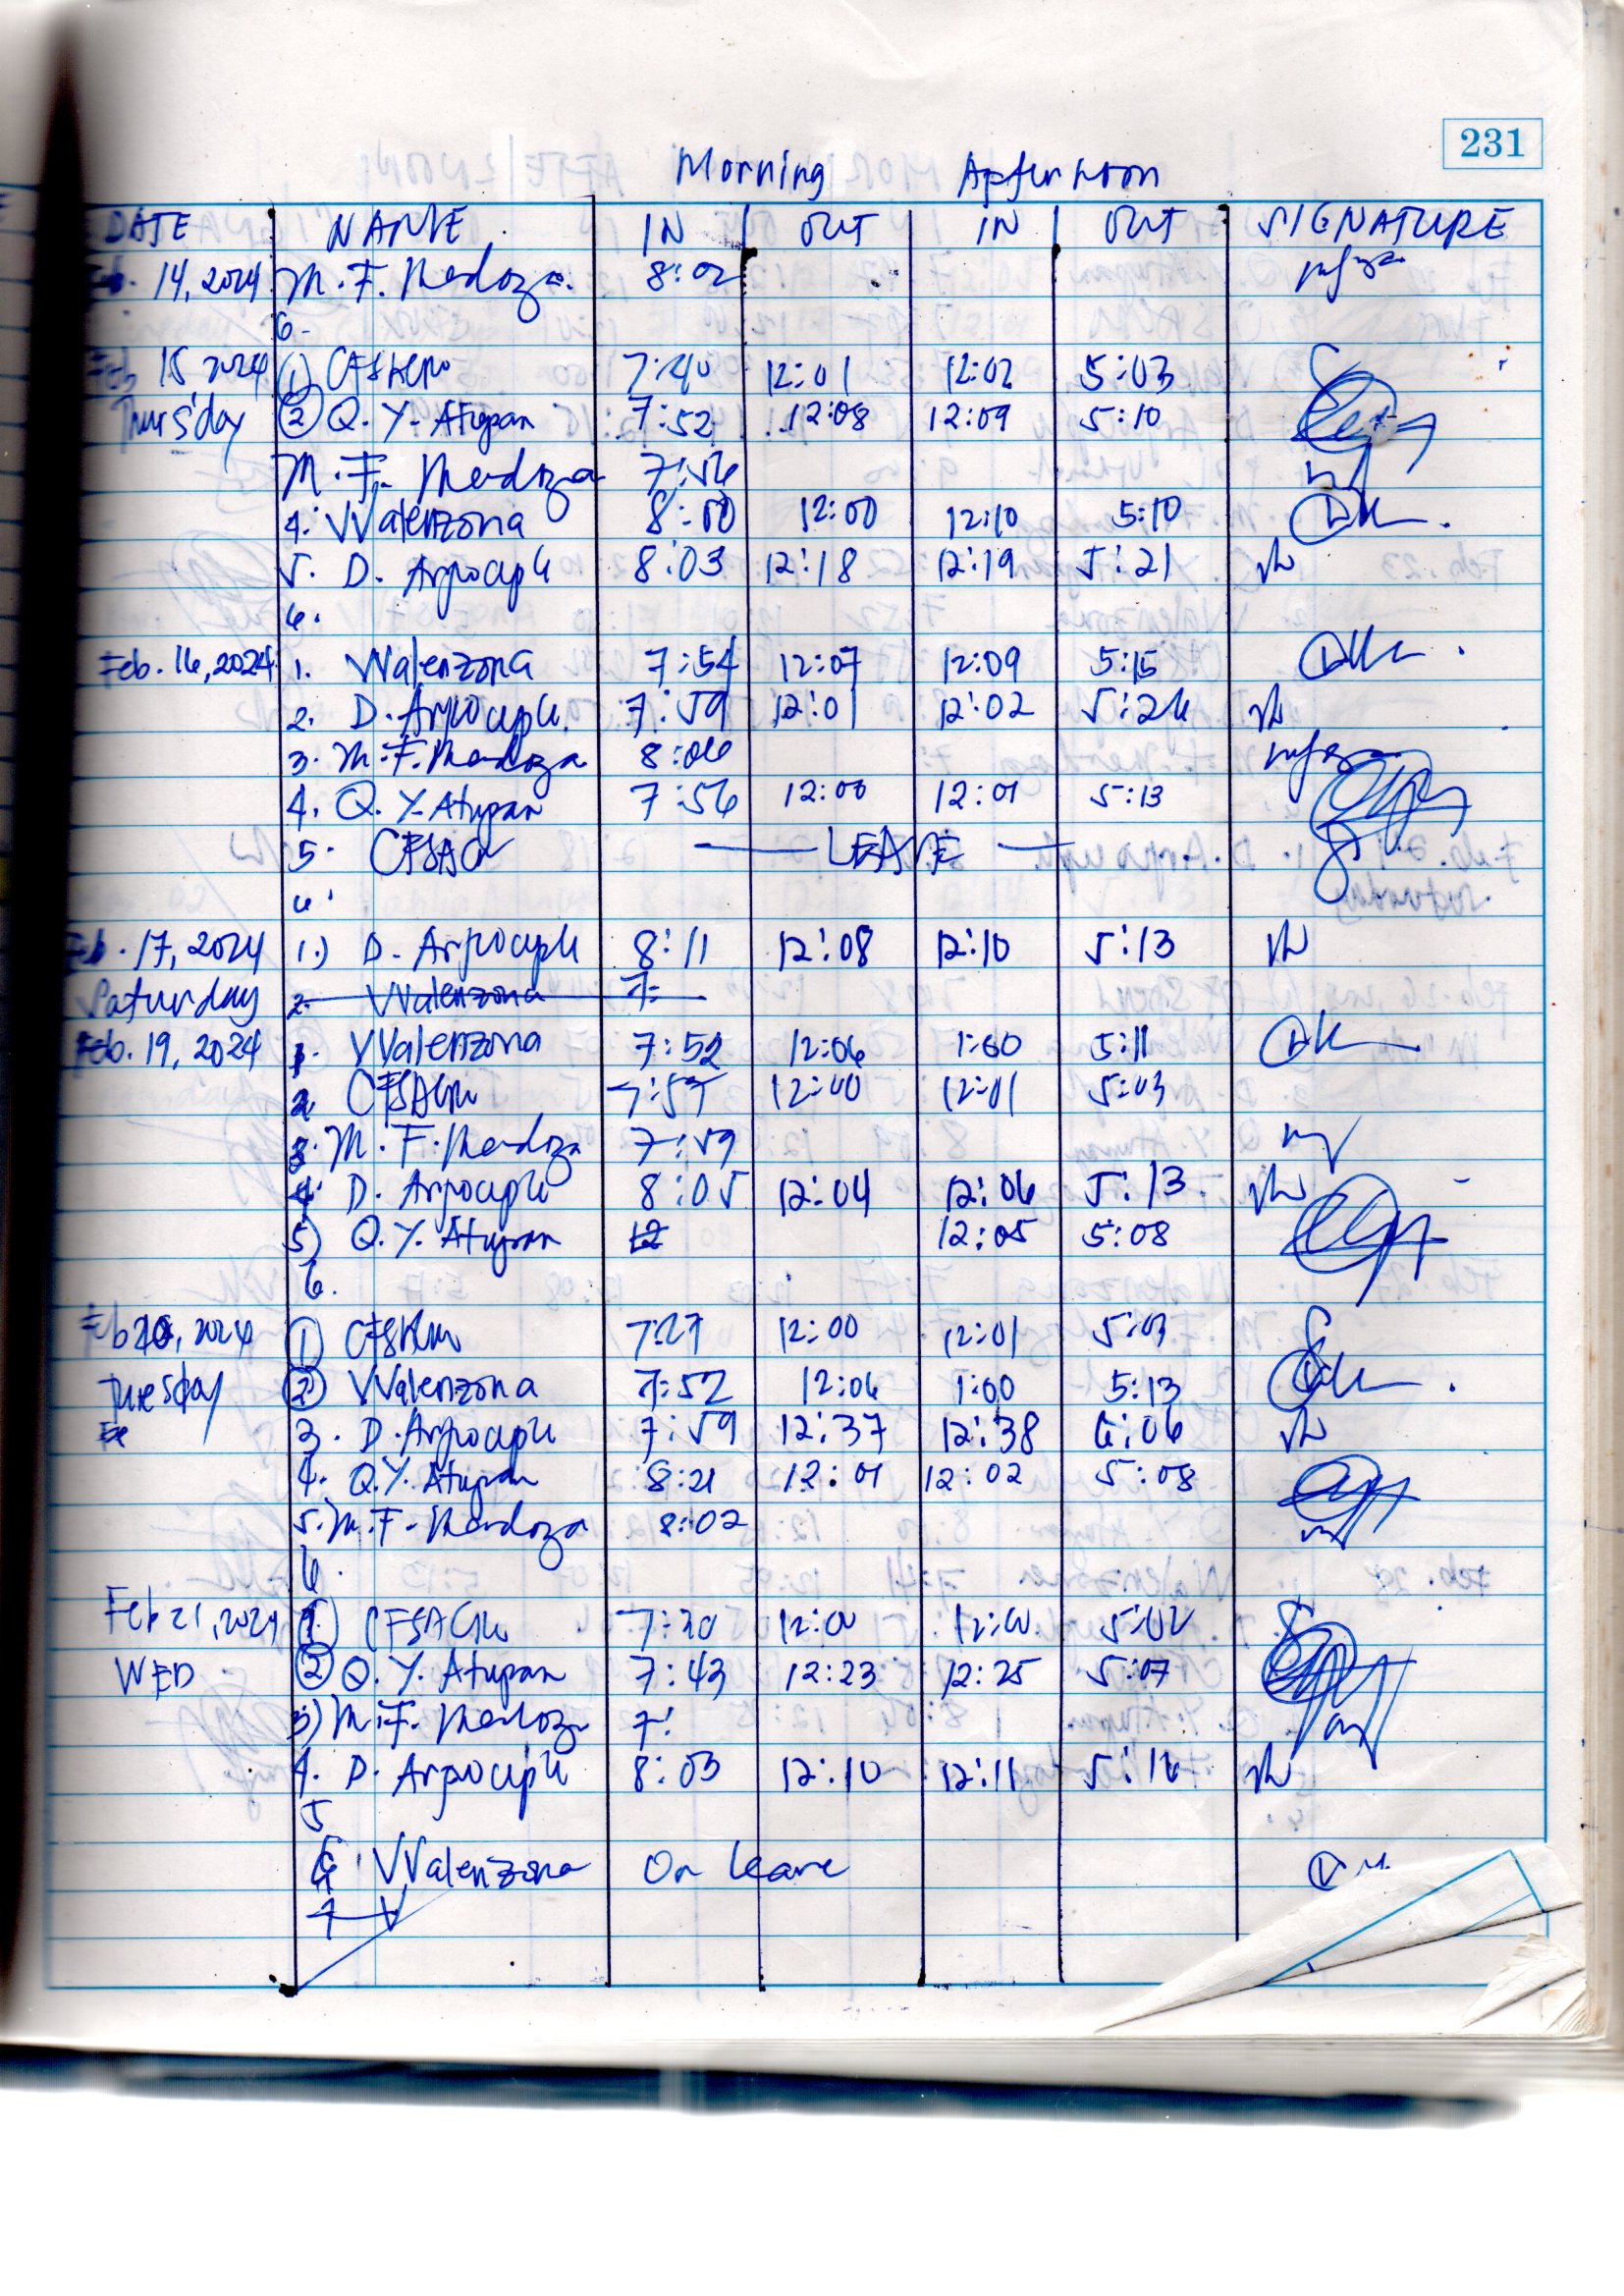 231
Morning Apfternoon
DATE NAME IN OUT IN OUT SIGNATURE
Feb. 14, 2024 M. F. Mendoza. 8:02
6.
Feb 15 2024 (1) 7:40 12:01 12:02 5:03
Thursday (2) Q. Y. Atupan 7:52 12:08 12:09 5:10
M. F. Mendoza 7:56
4. VValenzona 8:00 12:00 12:10 5:10
5. D. Arpociple 8:03 12:18 12:19 5:21
6.
Feb. 16, 2024 1. VValenzona 7:54 12:07 12:09 5:15
2. D. Arpociple 7:59 12:01 12:02 5:26
3. M. F. Mendoza 8:06
4. Q. Y. Atupan 7:56 12:00 12:01 5:13
5. LEAVE
6.
Feb. 17, 2024 1.) D. Arpociple 8:11 12:08 12:10 5:13
Saturday 2. VValenzona 7:
Feb. 19, 2024 1. VValenzona 7:52 12:06 1:00 5:11
2. 7:57 12:00 12:01 5:03
3. M. F. Mendoza 7:59
4. D. Arpociple 8:05 12:04 12:06 5:13
5) Q. Y. Atupan 12 12:05 5:08
6.
Feb 20, 2024 (1) 7:27 12:00 12:01 5:03
Tuesday (2) VValenzona 7:52 12:06 1:00 5:13
Fe 3. D. Arpociple 7:59 12:37 12:38 6:06
4. Q. Y. Atupan 8:21 12:01 12:02 5:08
5. M. F. Mendoza 8:02
6.
Feb 21, 2024 (1) 7:30 12:00 12:00 5:02
WED (2) Q. Y. Atupan 7:43 12:23 12:25 5:07
3) M. F. Mendoza 7:
4. D. Arpociple 8:03 12:10 12:11 5:16
5
6. VValenzona On leave
7 V